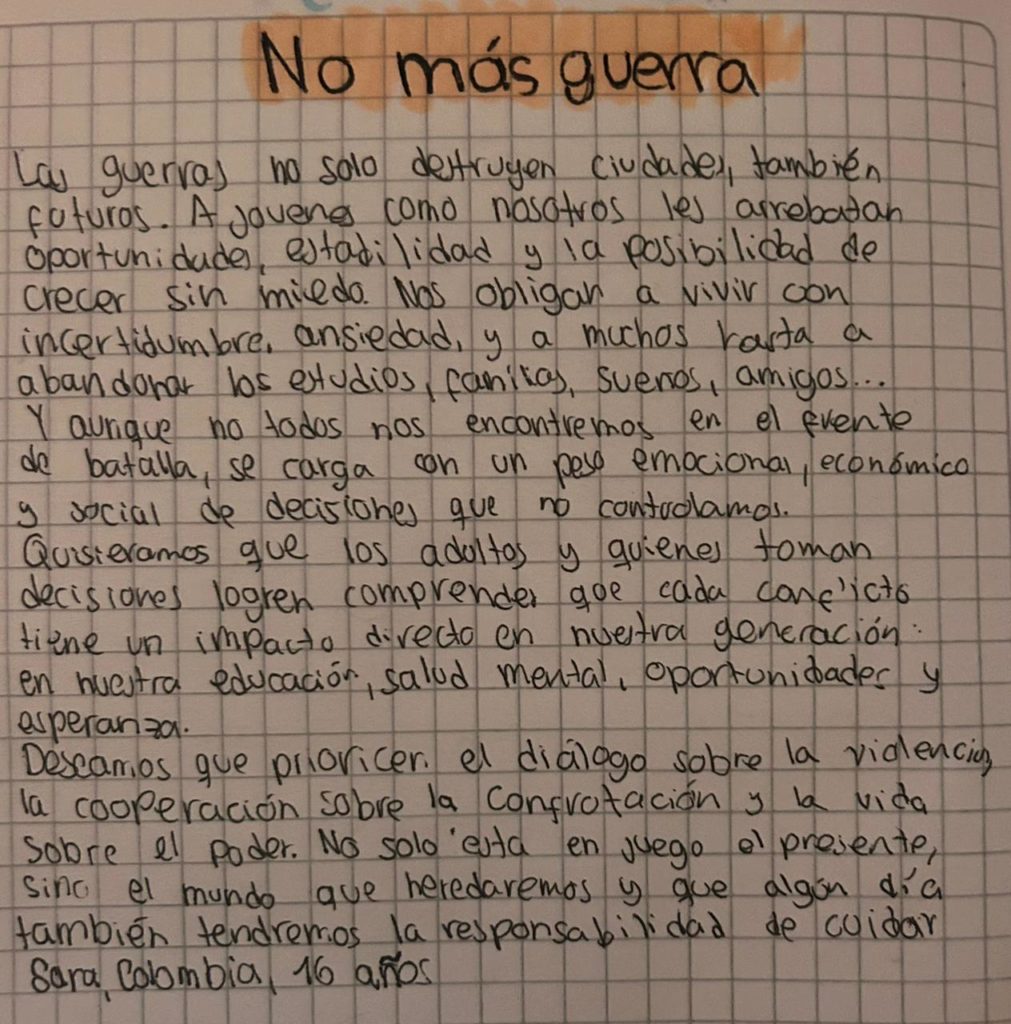 No más guerra
Las guerras no solo destruyen ciudades, también
futuros. A jovenes como nosotros les arrebatan
oportunidades, estabilidad y la posibilidad de
crecer sin miedo. Nos obligan a vivir con
incertidumbre, ansiedad, y a muchos hasta a
abandonar los estudios, familias, suenos, amigos...
Y aunque no todos nos encontremos en el frente
de batalla, se carga con un peso emocional, económico
y social de decisiones que no controlamos.
Quisieramos que los adultos y quienes toman
decisiones logren comprender que cada conflicto
tiene un impacto directo en nuestra generación:
en nuestra educación, salud mental, oportunidades y
esperanza.
Deseamos que prioricen el diálogo sobre la violencia,
la cooperación sobre la Confrotación y la vida
sobre el poder. No solo está en juego el presente,
sino el mundo que heredaremos y que algún día
también tendremos la responsabilidad de cuidar
Sara, Colombia, 16 años